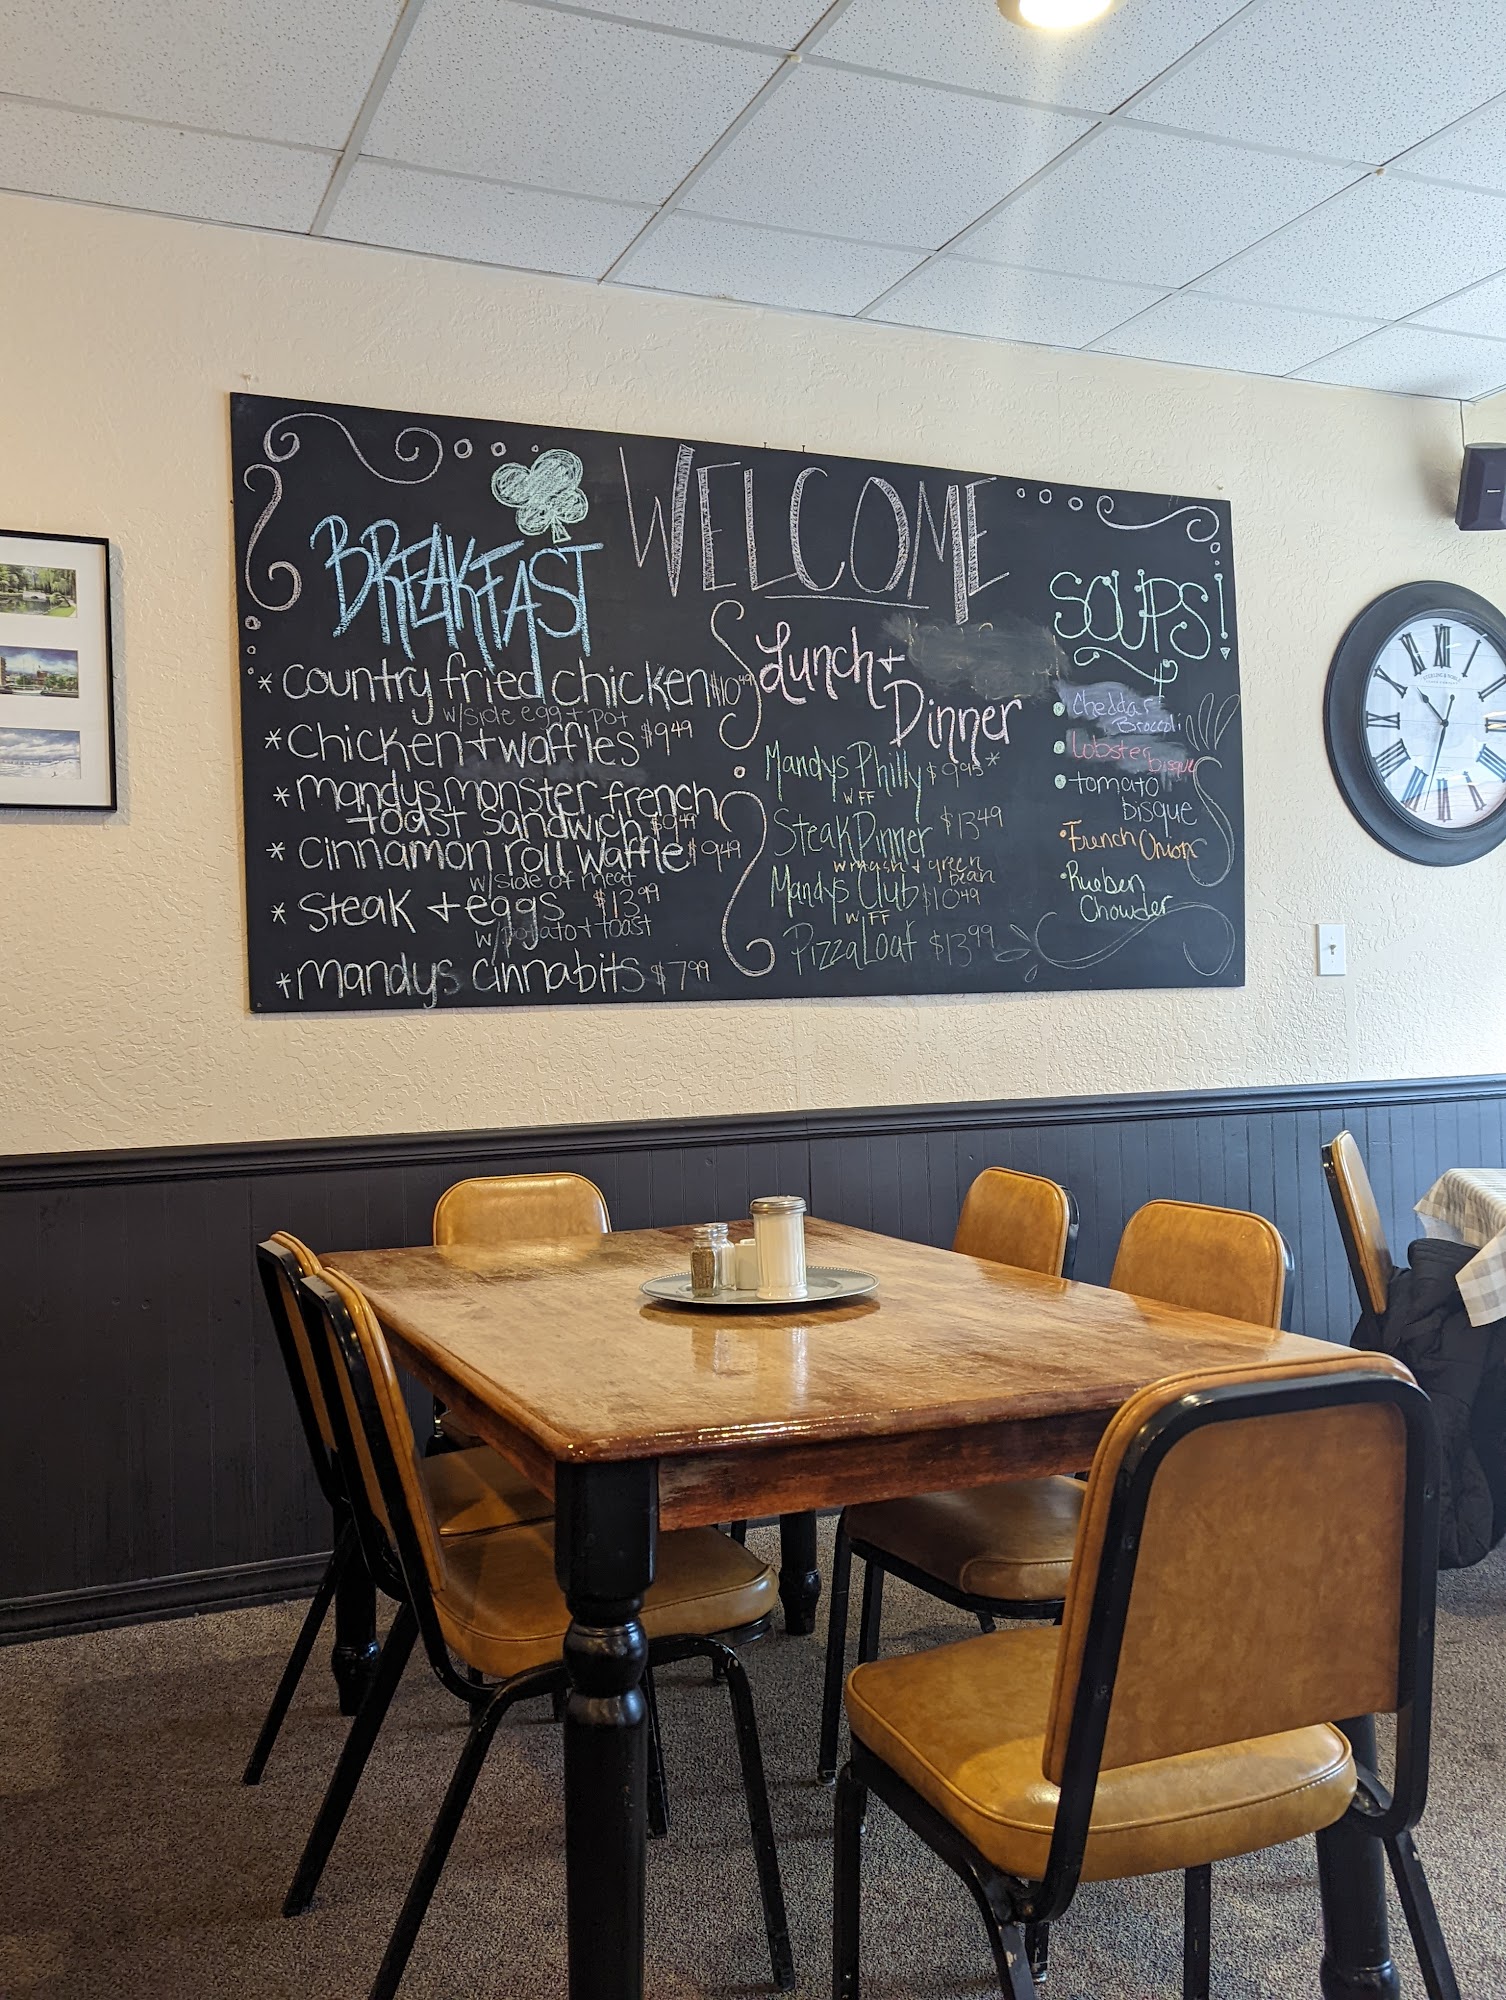 WELCOME
BREAKFAST
* country fried chicken $10.49
w/side egg + pot
* Chicken + waffles $9.49
* mandys monster french
toast sandwich $9.49
* cinnamon roll waffle $9.49
w/side of meat
* steak + eggs $13.99
w/potato + toast
* mandys cinnabits $7.99
Lunch +
Dinner
Mandys Philly $9.95*
w FF
Steak Dinner $13.49
w mash + green
bean
Mandys Club $10.49
w FF
Pizza Loaf $13.99
SOUPS!
Cheddar
Broccoli
lobster bisque
tomato
bisque
French Onion
Rueben
Chowder